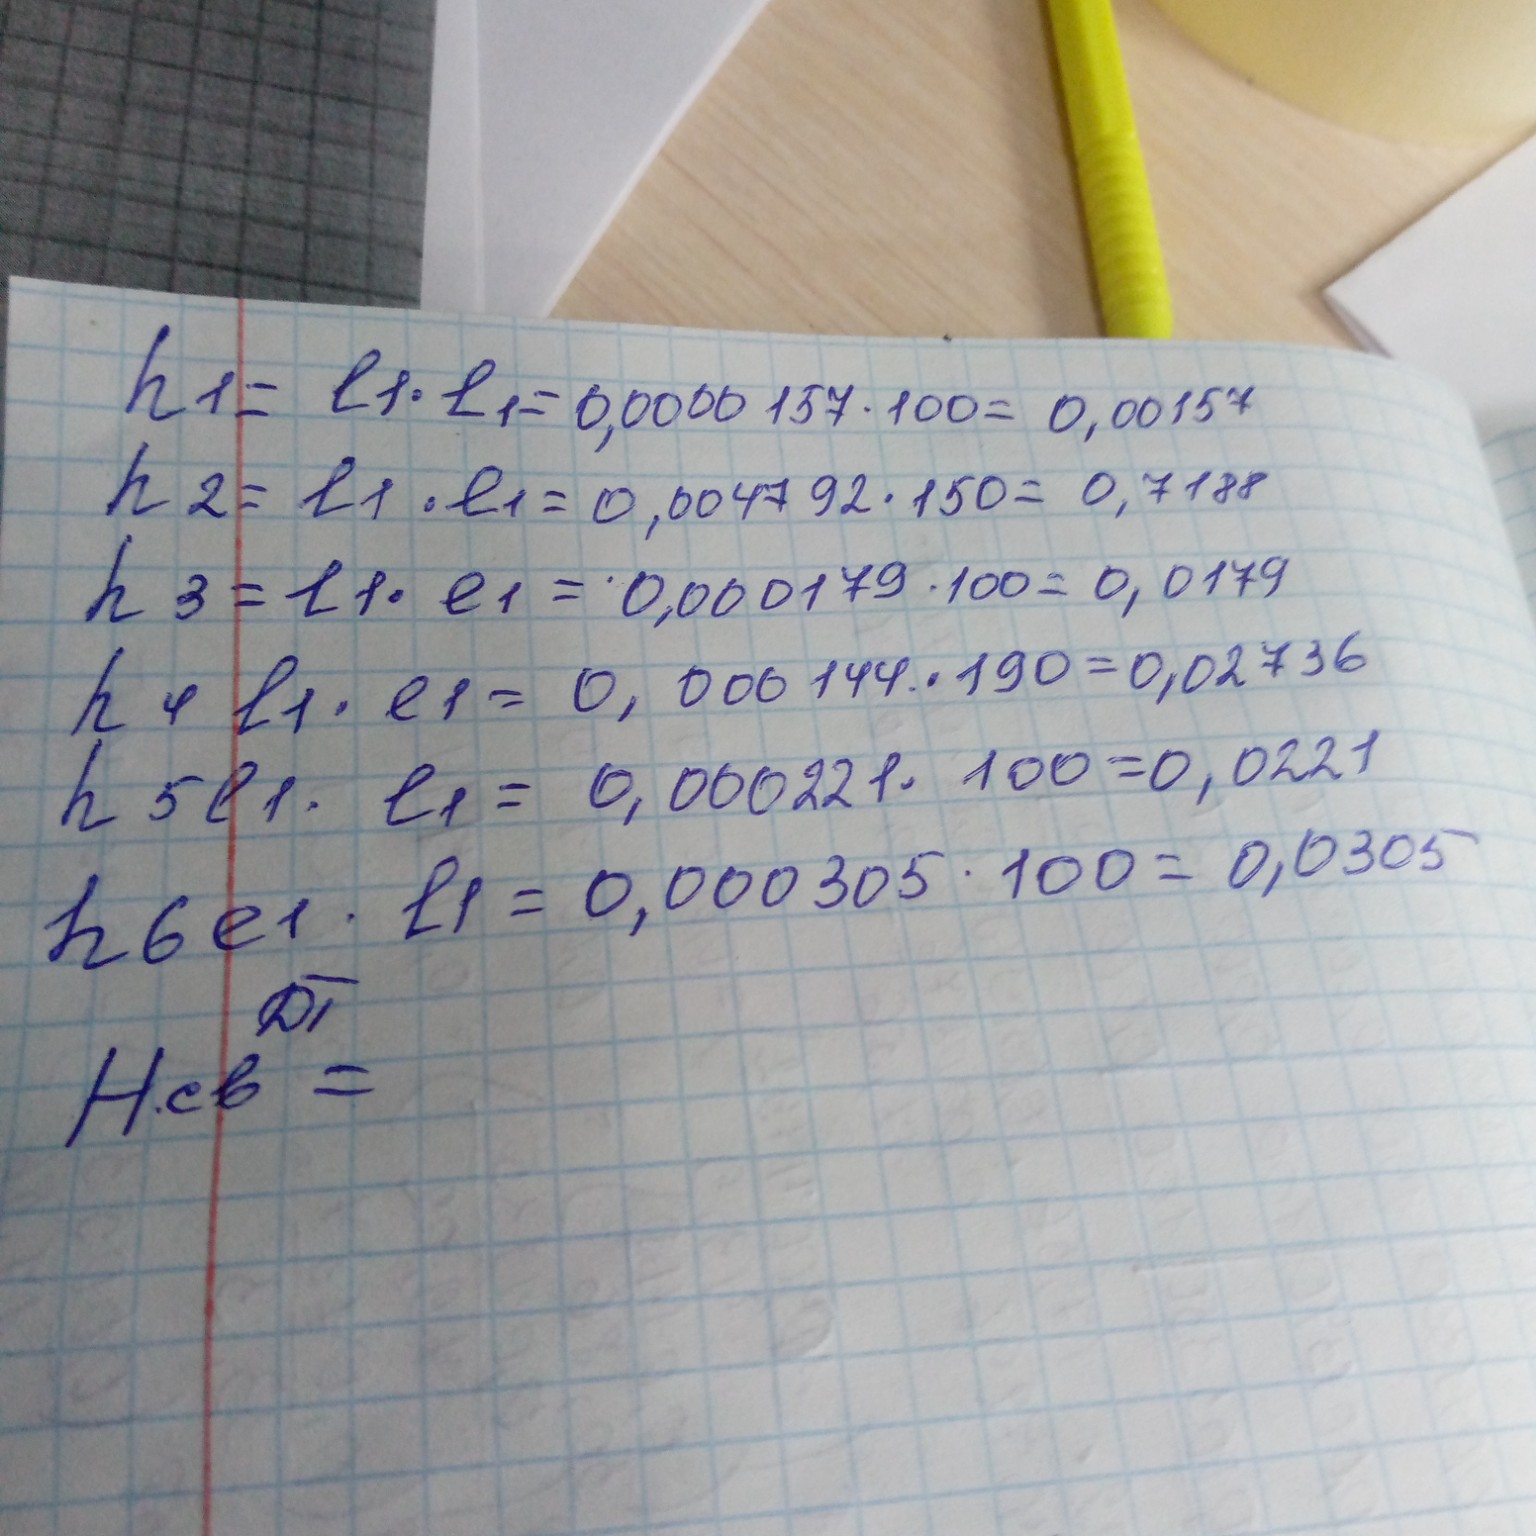 h1= l1·l1= 0,0000157·100= 0,00157
h2= l1·l1= 0,004792·150= 0,7188
h3= l1·e1= 0,000179·100= 0,0179
h4 l1·e1= 0,000144·190=0,02736
h5 l1· l1= 0,000221· 100=0,0221
h6 e1· l1= 0,000305·100= 0,0305
H.св =